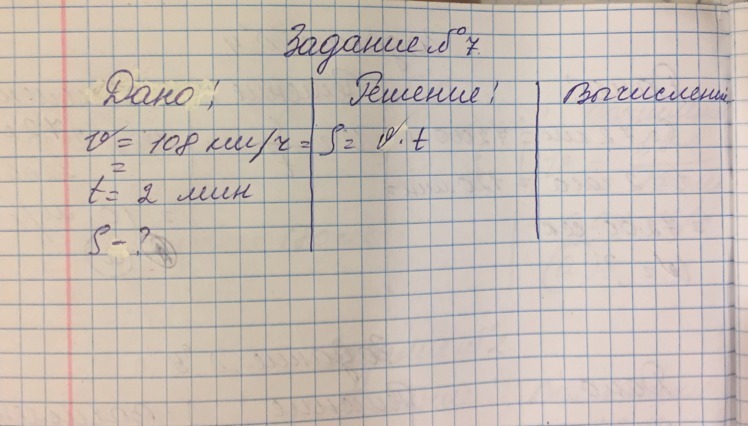 Задание №7.
Дано: Решение: Вычисления
v = 108 км/ч = S = v · t
=
t = 2 мин
S - ?